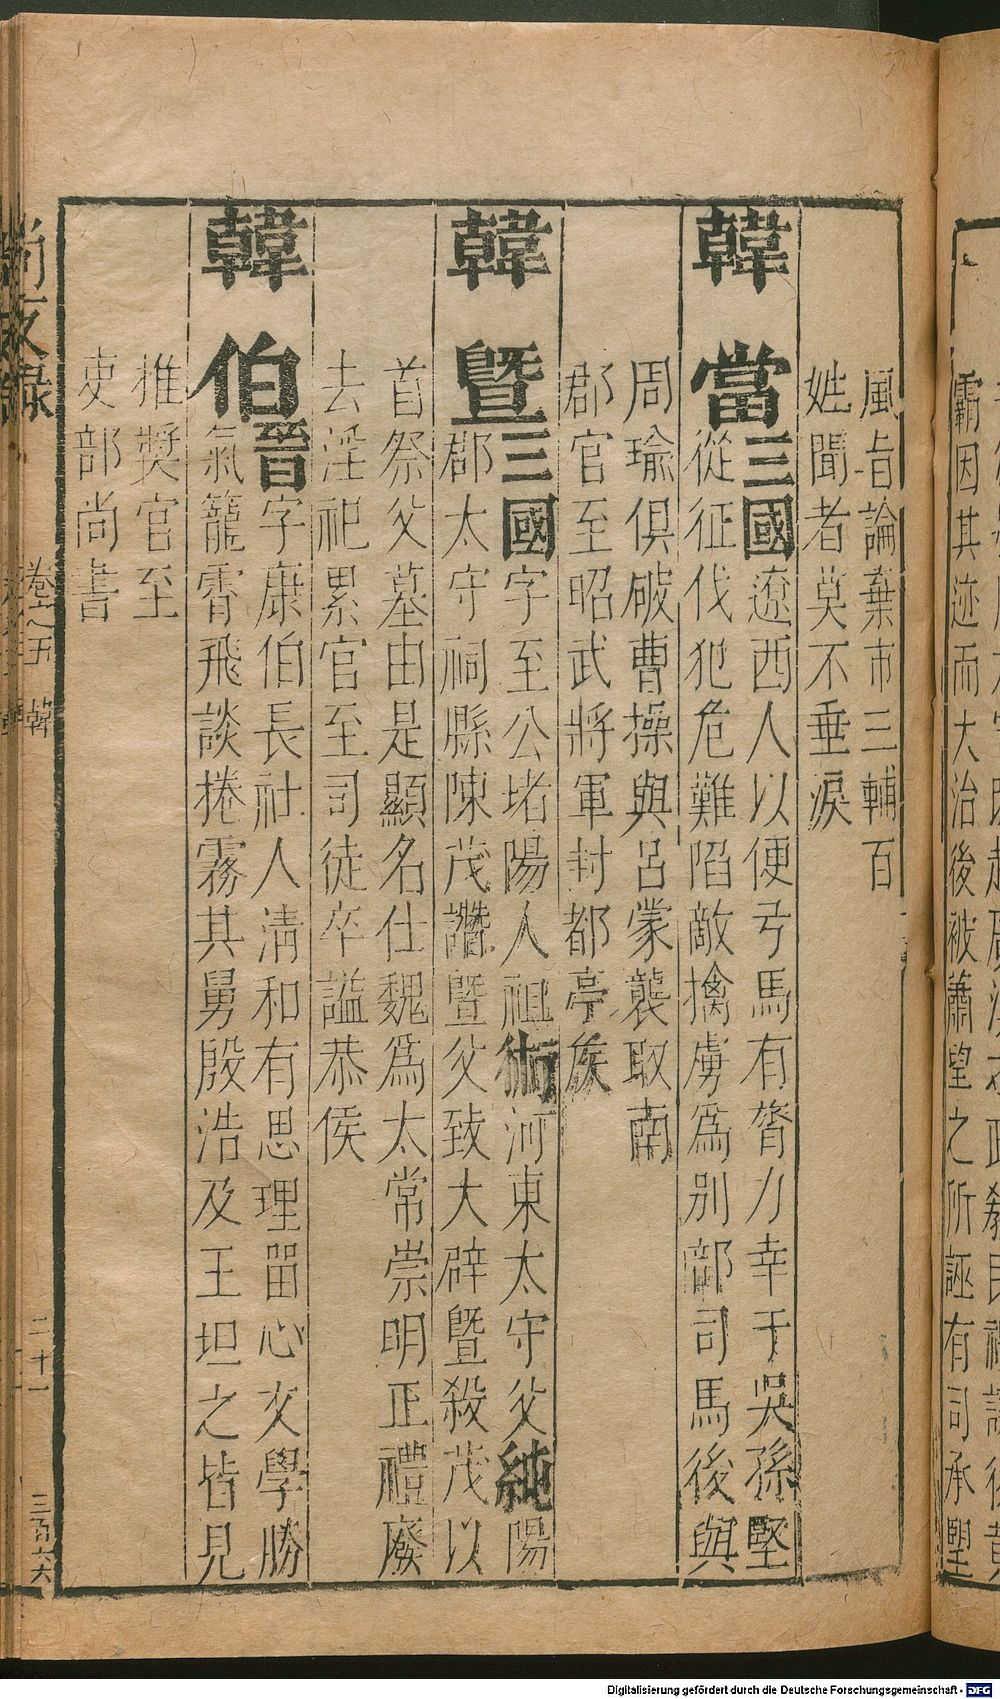 霸因其迹而大治後被蕭望之所誣有司承望
風旨論棄市三輔百
姓聞者莫不垂淚
韓當三國遼西人以便弓馬有膂力幸于吳孫堅
從征伐犯危難陷敵擒虜為别部司馬後與
周瑜俱破曹操與呂蒙襲取南
郡官至昭武將軍封都亭矦
韓曁三國字至公堵陽人祖術河東太守父純陽
郡太守祠縣陳茂譖曁父致大辟曁殺茂以
首祭父墓由是顯名仕魏為太常崇明正禮廢
去淫祀累官至司徒卒謚恭侯
韓伯晉字康伯長社人淸和有思理畱心文學勝
氣籠霄飛談捲霧其舅殷浩及王坦之皆見
推奬官至
吏部尚書
尚友錄 卷之五 韓 二十一 三百六六
Digitalisierung gefördert durch die Deutsche Forschungsgemeinschaft - DFG